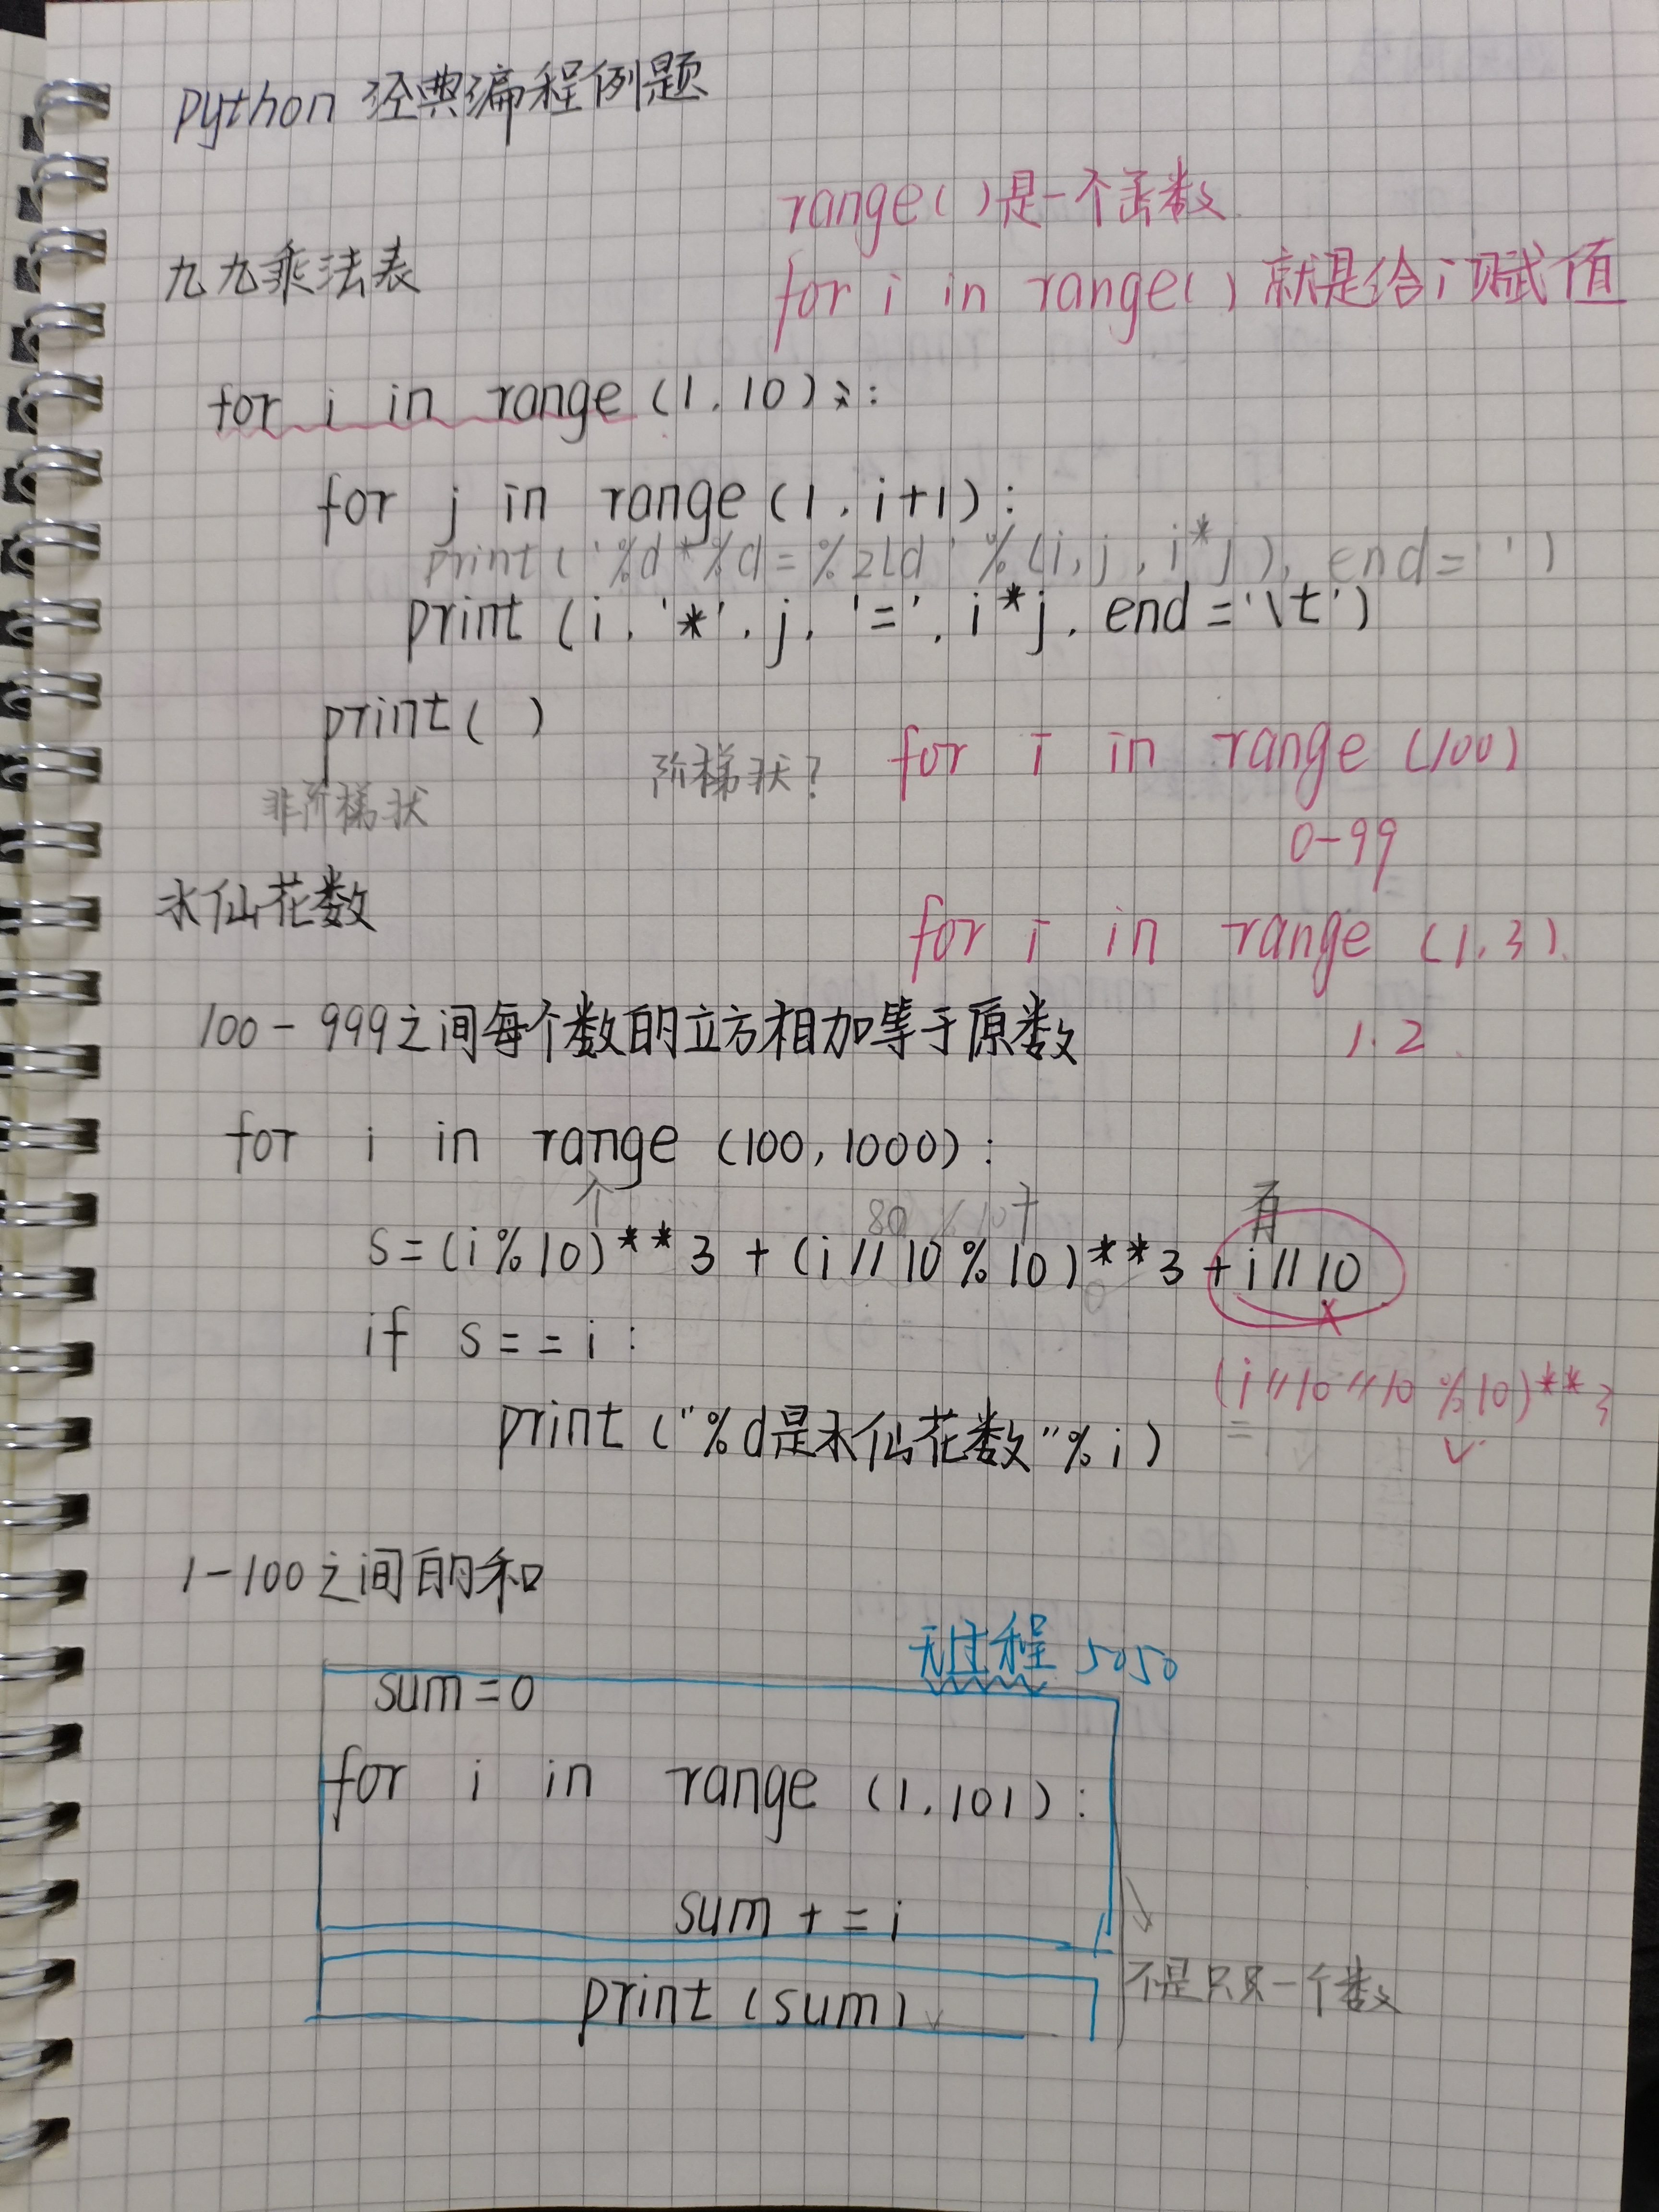 python 经典编程例题
range()是一个函数
九九乘法表
for i in range()就是给i赋值
for i in range (1,10):
for j in range (1,i+1):
print('%d*%d=%2ld'%(i,j,i*j),end=' ')
print (i,'*',j,'=',i*j,end='\t')
print( )
阶梯状?
for i in range (100)
非阶梯状
0-99
水仙花数
for i in range (1,3)
100-999之间每个数的立方相加等于原数
1.2
for i in range (100,1000):
个 80 % 10 十 百
s=(i%10)**3+(i//10%10)**3+i//10
0 x
if s==i:
(i//10//10%10)**3
print("%d是水仙花数"%i)
1-100之间的和
无过程 5050
sum=0
for i in range (1,101):
sum+=i
不是只一个数
print(sum)